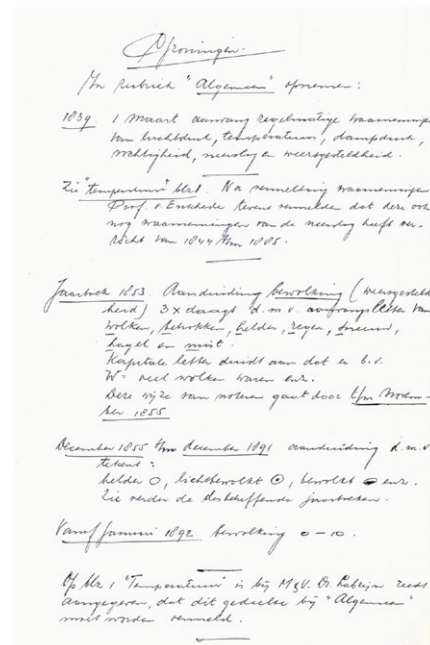 Groningen.
In rubriek "Algemeen" opnemen:
1839. 1 Maart aanvang regelmatige waarnemingen
van luchtdruk, temperatuur, dampdruk,
vochtigheid, neerslag en weersgesteldheid.
Zie "temperatuur" blz 1. Na vermelding waarnemingen
Prof. v. Enschede tevens vermelden dat deze ook
nog waarnemingen van de neerslag heeft ver-
richt van 1844 t/m 1885.
Jaarboek 1853. Aanduiding bewolking (weersgesteld
heid) 3 x daags d.m.v. aanvangsletter van
wolken, betrokken, helder, regen, sneeuw,
hagel en mist.
Kapitale letter duidt aan dat er b.v.
W = veel wolken waren enz.
Deze wijze van noteren gaat door t/m Novem-
ber 1855
December 1855 t/m december 1891 aanduiding d.m.v
tekens:
helder O, lichtbewolkt ⊙, bewolkt enz.
Zie verder de desbetreffende jaarboeken.
Vanaf Januari 1892 bewolking 0 – 10.
Op blz 1 "Temperatuur" is bij M & V. Dr. Labrijn reeds
aangegeven, dat dit gedeelte bij "Algemeen"
moet worden vermeld.